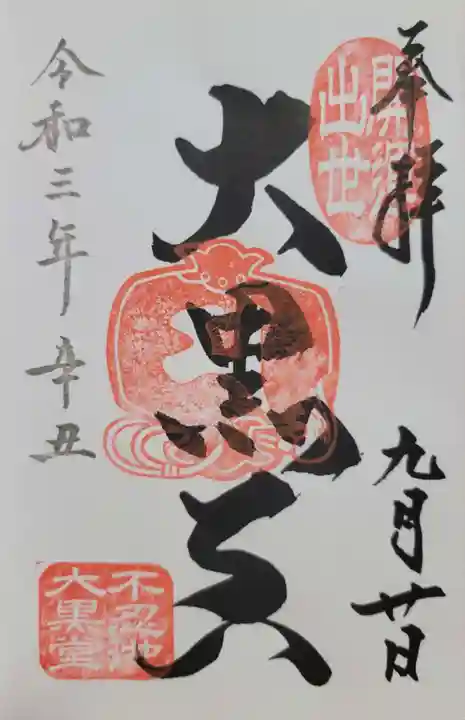 奉拝
開運
出世
九月廿日
大黒天
令和三年辛丑
不忍池
大黒堂